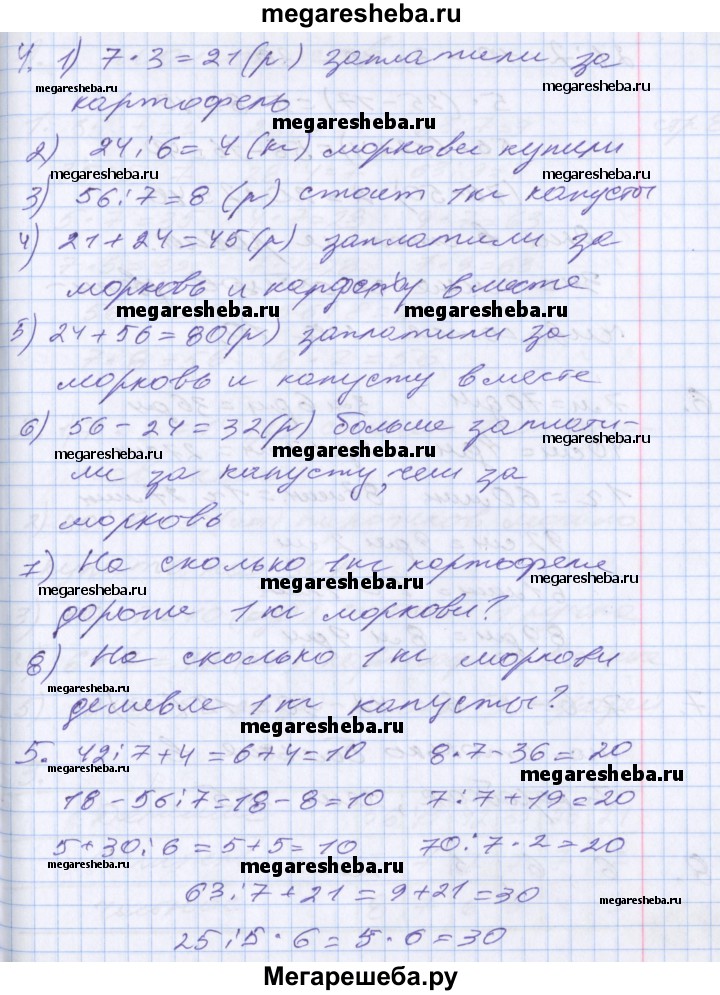 megaresheba.ru
4. 1) 7 · 3 = 21 (р) заплатили за
megaresheba.ru megaresheba.ru
картофель
megaresheba.ru
2) 24 : 6 = 4 (кг) моркови купили
megaresheba.ru megaresheba.ru
3) 56 : 7 = 8 (р) стоит 1 кг капусты
4) 21 + 24 = 45 (р) заплатили за
морковь и вместе
megaresheba.ru megaresheba.ru
5) 24 + 56 = 80 (р) заплатили за
морковь и капусту вместе
6) 56 - 24 = 32 (р) больше заплати-
megaresheba.ru megaresheba.ru
ли за капусту, чем за
морковь
7) На сколько 1 кг картофеля
megaresheba.ru megaresheba.ru megaresheba.ru
дороже 1 кг моркови?
8) На сколько 1 кг моркови
megaresheba.ru
дешевле 1 кг капусты?
megaresheba.ru
5. 42 : 7 + 4 = 6 + 4 = 10 8 · 7 - 36 = 20
megaresheba.ru megaresheba.ru
18 - 56 : 7 = 18 - 8 = 10 7 : 7 + 19 = 20
5 + 30 : 6 = 5 + 5 = 10 70 : 7 · 2 = 20
megaresheba.ru megaresheba.ru
63 : 7 + 21 = 9 + 21 = 30
megaresheba.ru
25 : 5 · 6 = 5 · 6 = 30
megaresheba.ru
Мегарешеба.ру